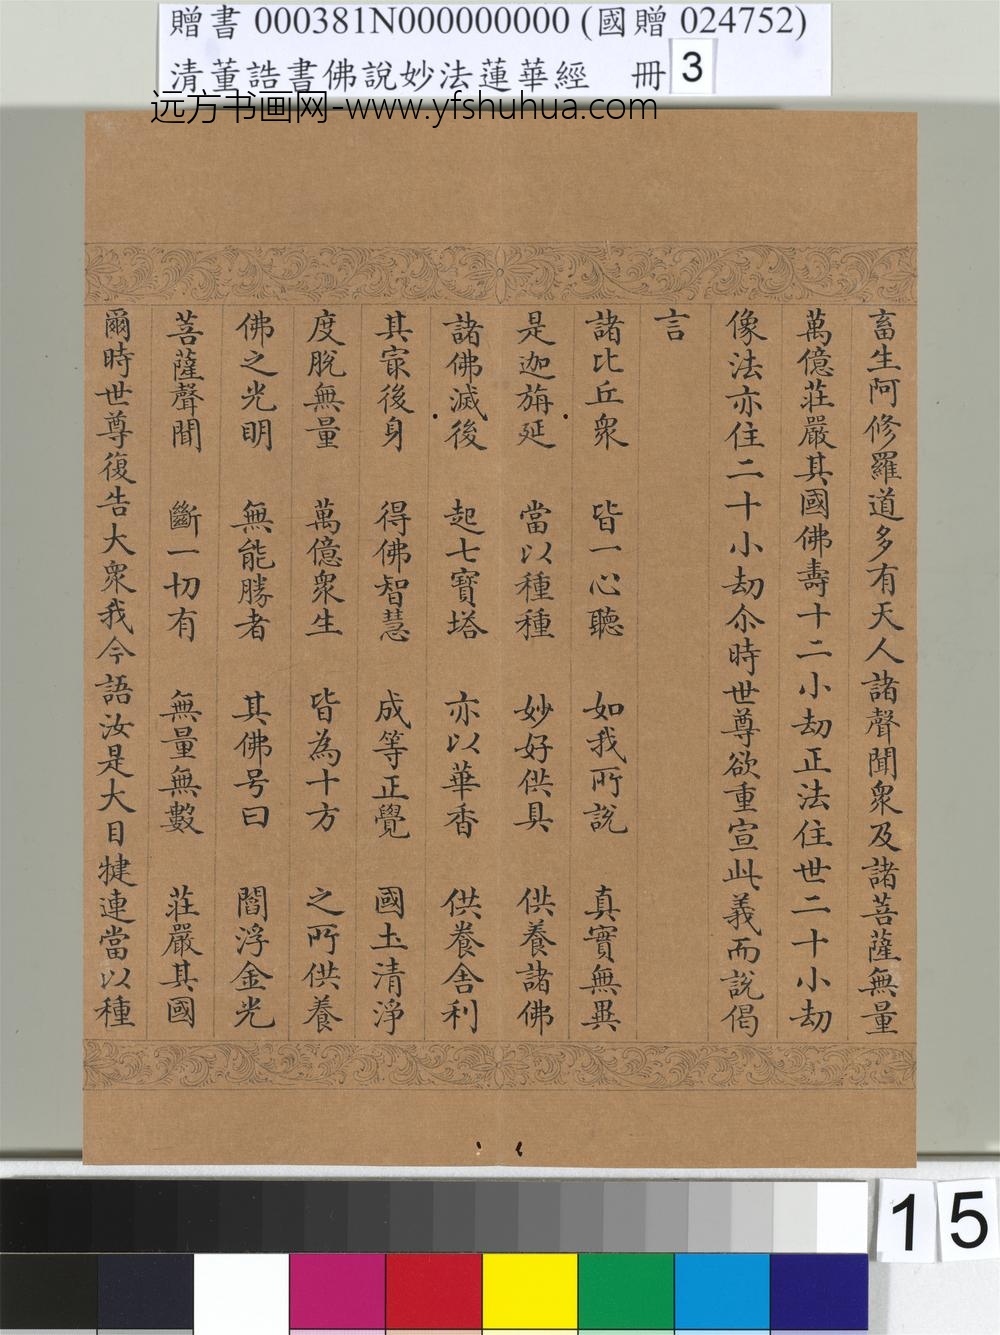 贈書 000381N000000000 (國贈 024752)
清董誥書佛說妙法蓮華經 冊 3
远方书画网-www.yfshuhua.com
畜生阿修羅道多有天人諸聲聞衆及諸菩薩無量
萬億莊嚴其國佛壽十二小劫正法住世二十小劫
像法亦住二十小劫尒時世尊欲重宣此義而說偈
言
諸比丘衆 皆一心聽 如我所說 真實無異
是迦旃延 當以種種 妙好供具 供養諸佛
諸佛滅後 起七寶塔 亦以華香 供養舍利
其㝡後身 得佛智慧 成等正覺 國土清淨
度脫無量 萬億衆生 皆為十方 之所供養
佛之光明 無能勝者 其佛号曰 閻浮金光
菩薩聲聞 斷一切有 無量無數 莊嚴其國
爾時世尊復告大衆我今語汝是大目犍連當以種
15